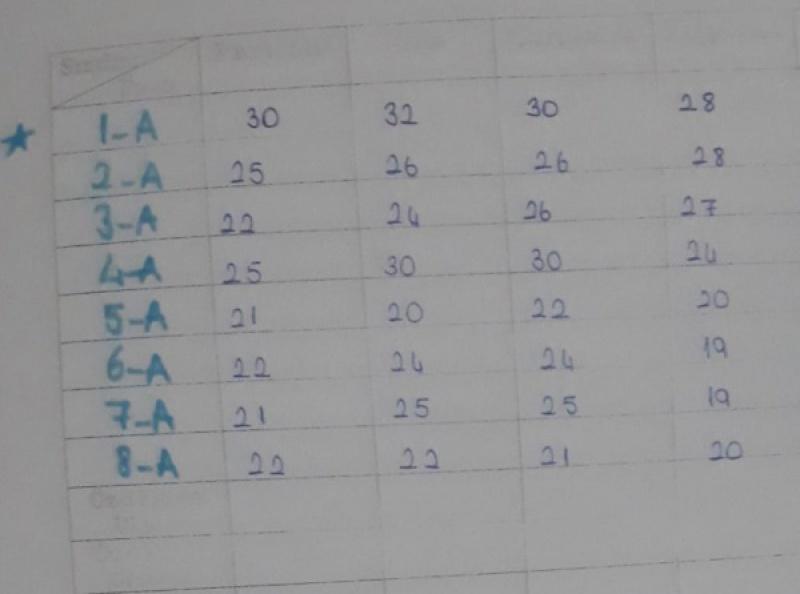 1-A 30 32 30 28
2-A 25 26 26 28
3-A 22 24 26 27
4-A 25 30 30 24
5-A 21 20 22 20
6-A 22 24 24 19
7-A 21 25 25 19
8-A 22 22 21 20